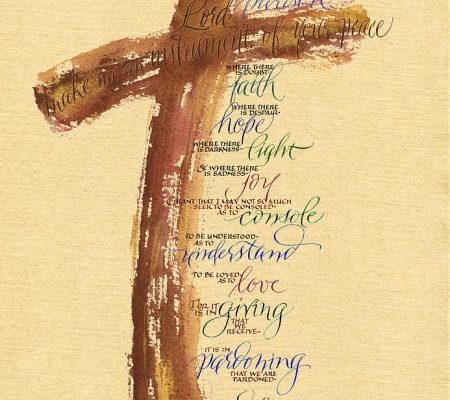 Lord
pardon
make me an instrument of your peace
WHERE THERE
IS DOUBT·
faith
WHERE THERE
IS DESPAIR·
hope
WHERE THERE
IS DARKNESS·
light
& WHERE THERE
IS SADNESS·
joy
GRANT THAT I MAY NOT SO MUCH
SEEK TO BE CONSOLED·
AS TO
console
TO BE UNDERSTOOD·
AS TO
understand
TO BE LOVED
AS TO
love
FOR IT
IS IN
giving
THAT
WE
RECEIVE·
IT IS IN
pardoning
THAT WE ARE
PARDONED·